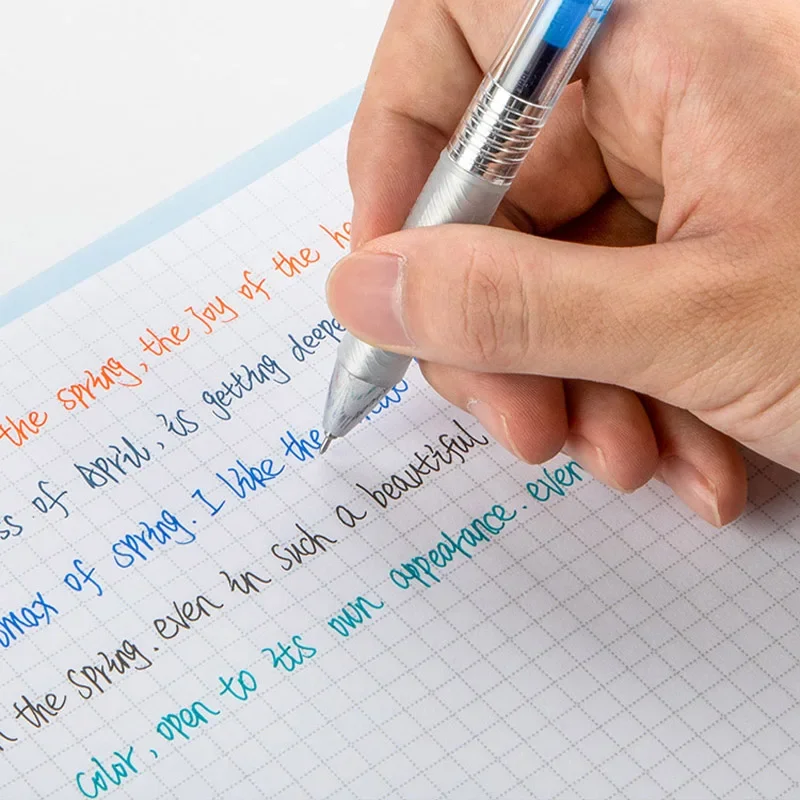 the spring, the joy of the
of April, is getting
of spring. I like the
the spring. even in such a beautiful
color, open to its own appearance. even